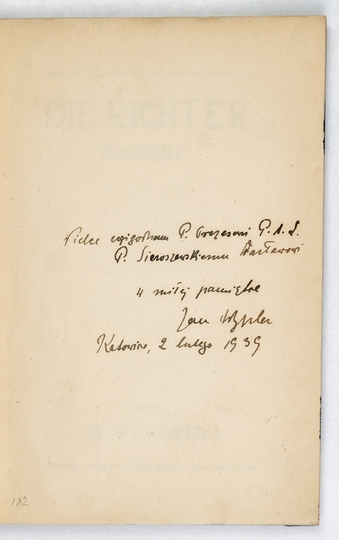 Wielce czcigodnemu P. Prezesowi P. A. L.
P. Sieroszewskiemu Wacławowi
w miłej pamiątce
Jan Wypler
Katowice, 2 lutego 1939
DIE RICHTER
182